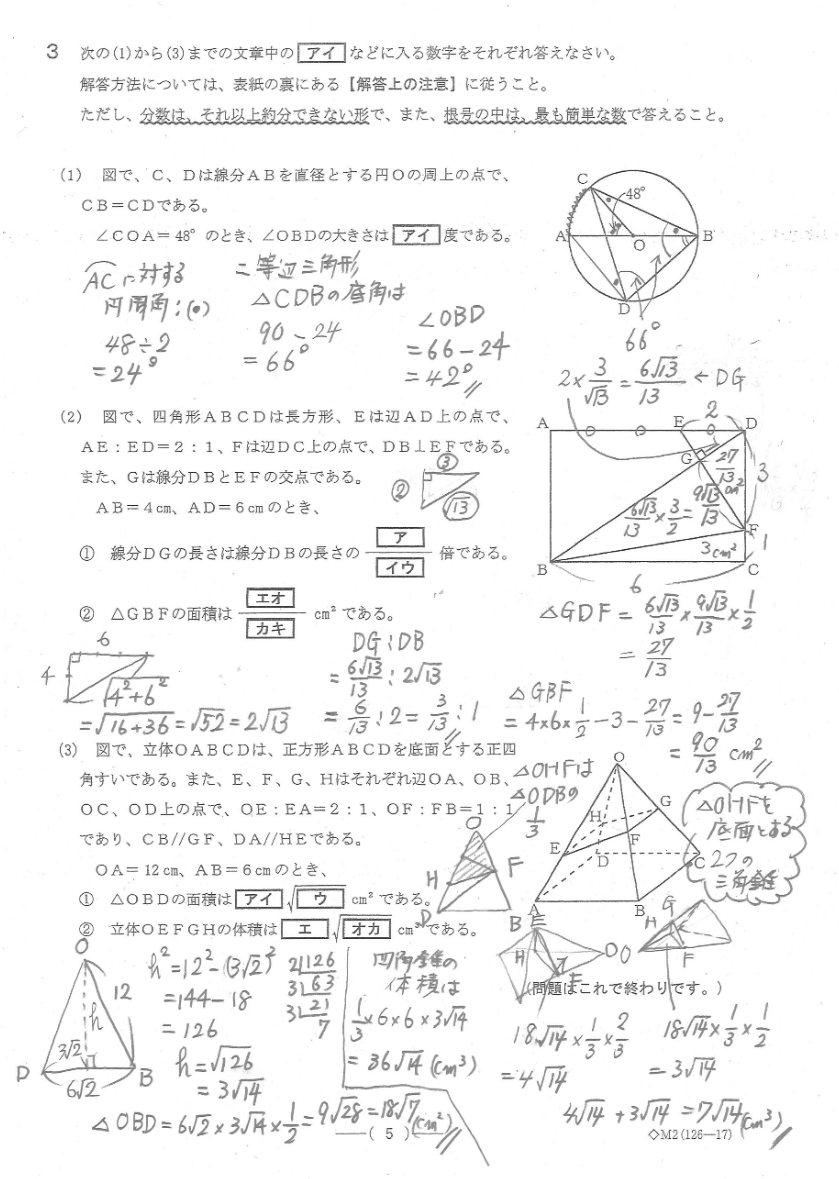 3 次の(1)から(3)までの文章中の アイ などに入る数字をそれぞれ答えなさい。
解答方法については、表紙の裏にある【解答上の注意】に従うこと。
ただし、分数は、それ以上約分できない形で、また、根号の中は、最も簡単な数で答えること。
(1) 図で、C、Dは線分ABを直径とする円Oの周上の点で、
CB=CDである。
∠COA=48°のとき、∠OBDの大きさは アイ 度である。
C
48°
A
O
B
D
66°
ACに対する
円周角:(•)
48÷2
=24°
二等辺三角形
△CDBの底角は
90-24
=66°
∠OBD
=66-24
=42°
2×3/√13=6√13/13←DG
(2) 図で、四角形ABCDは長方形、Eは辺AD上の点で、
AE:ED=2:1、Fは辺DC上の点で、DB⊥EFである。
また、Gは線分DBとEFの交点である。
AB=4cm、AD=6cmのとき、
③
②
√13
① 線分DGの長さは線分DBの長さの ア/イウ 倍である。
② △GBFの面積は エオ/カキ cm²である。
A
E
2
D
G
27/13 cm²
3
6√13/13×3/2=9√13/13
F
3cm²
1
B
6
C
△GDF=6√13/13×9√13/13×1/2
=27/13
6
4
√4²+6²
=√16+36=√52=2√13
DG:DB
=6√13/13:2√13
=6/13:2=3/13:1
△GBF
=4×6×1/2-3-27/13=9-27/13
=90/13 cm²
(3) 図で、立体OABCDは、正方形ABCDを底面とする正四
角すいである。また、E、F、G、Hはそれぞれ辺OA、OB、
OC、OD上の点で、OE:EA=2:1、OF:FB=1:1
であり、CB//GF、DA//HEである。
OA=12cm、AB=6cmのとき、
① △OBDの面積は アイ√ウ cm²である。
② 立体OEFGHの体積は エ√オカ cm³である。
△OHFは
△ODBの
1/3
O
H
F
D
B
O
G
H
E
F
D
C
A
B
△OHFを
底面とする
2つの
三角錐
E
H
F
O
O
G
H
F
(問題はこれで終わりです。)
O
12
h
3√2
D
B
6√2
h²=12²-(3√2)²
=144-18
=126
h=√126
=3√14
2)126
3)63
3)21
7
四角錐の
体積は
1/3×6×6×3√14
=36√14(cm³)
18√14×1/3×2/3
=4√14
18√14×1/3×1/2
=3√14
4√14+3√14=7√14(cm³)
△OBD=6√2×3√14×1/2=9√28=18√7(cm²)
—( 5 )—
◇M2(126—17)